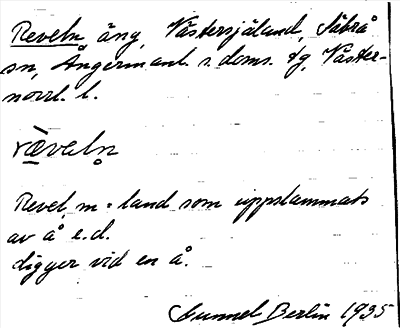 Reveln äng, Västersjäland, Säbrå
sn, Ångermanl. s. doms. tg, Väster-
norrl. l.
ræveln̥
Revel, m = land som uppslammats
av å e.d.
digger vid en å.
Gunnel Berlin 1935